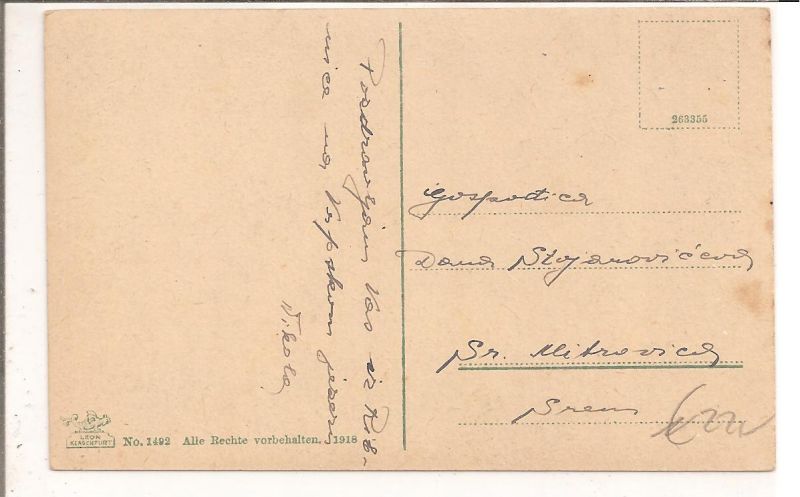 Pozdravljam Vas iz Rib-
nice na Vrpskom jezeru
Nikola
263355
Gospođica
Dana Stojanovićeva
Sr. Mitrovica
Srem
LEON
KLAGENFURT
No. 1492 Alle Rechte vorbehalten. 1918